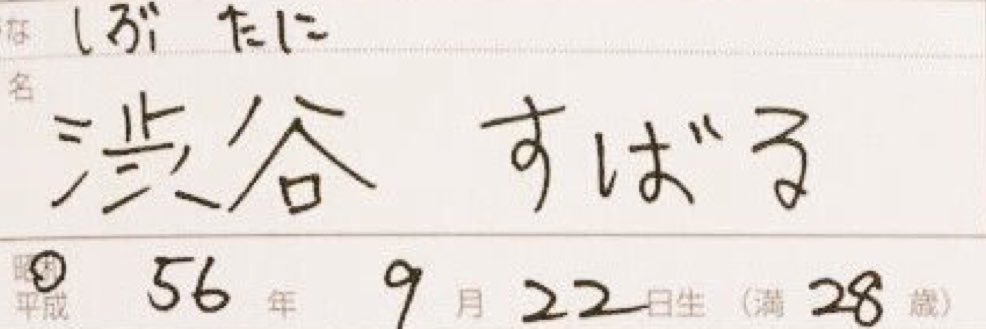 な しぶ たに
名 渋谷 すばる
昭和
平成 56 年 9 月 22 日生 (満 28 歳)